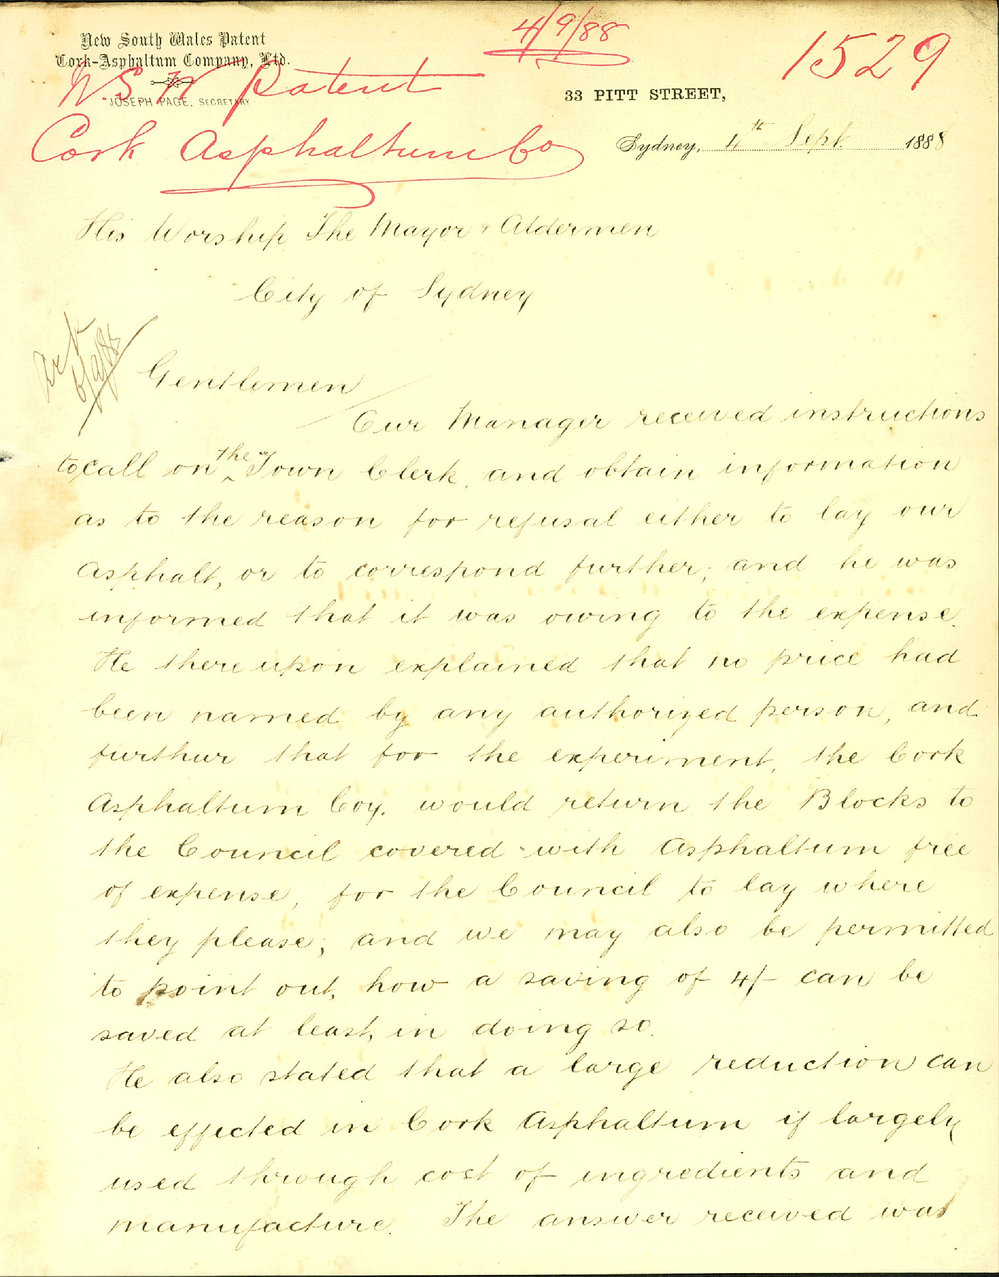 New South Wales Patent
Cork-Asphaltum Company, Ltd.
JOSEPH PAGE, SECRETARY
4/9/88
1529
N S W Patent
Cork Asphaltum Co
33 PITT STREET,
Sydney, 4th Sept 1888
His Worship The Mayor & Aldermen
City of Sydney
6/9/88
Gentlemen
Our Manager received instructions
to call on the Town Clerk, and obtain information
as to the reason for refusal either to lay our
Asphalt, or to correspond further; and he was
informed that it was owing to the expense.
He thereupon explained that no price had
been named by any authorized person, and
furthur that for the experiment, the Cork
Asphaltum Coy. would return the Blocks to
the Council covered with Asphaltum free
of expense, for the Council to lay where
they please; and we may also be permitted
to point out, how a saving of 4/- can be
saved at least, in doing so.
He also stated that a large reduction can
be effected in Cork Asphaltum if largely
used through cost of ingredients and
manufacture. The answer received was